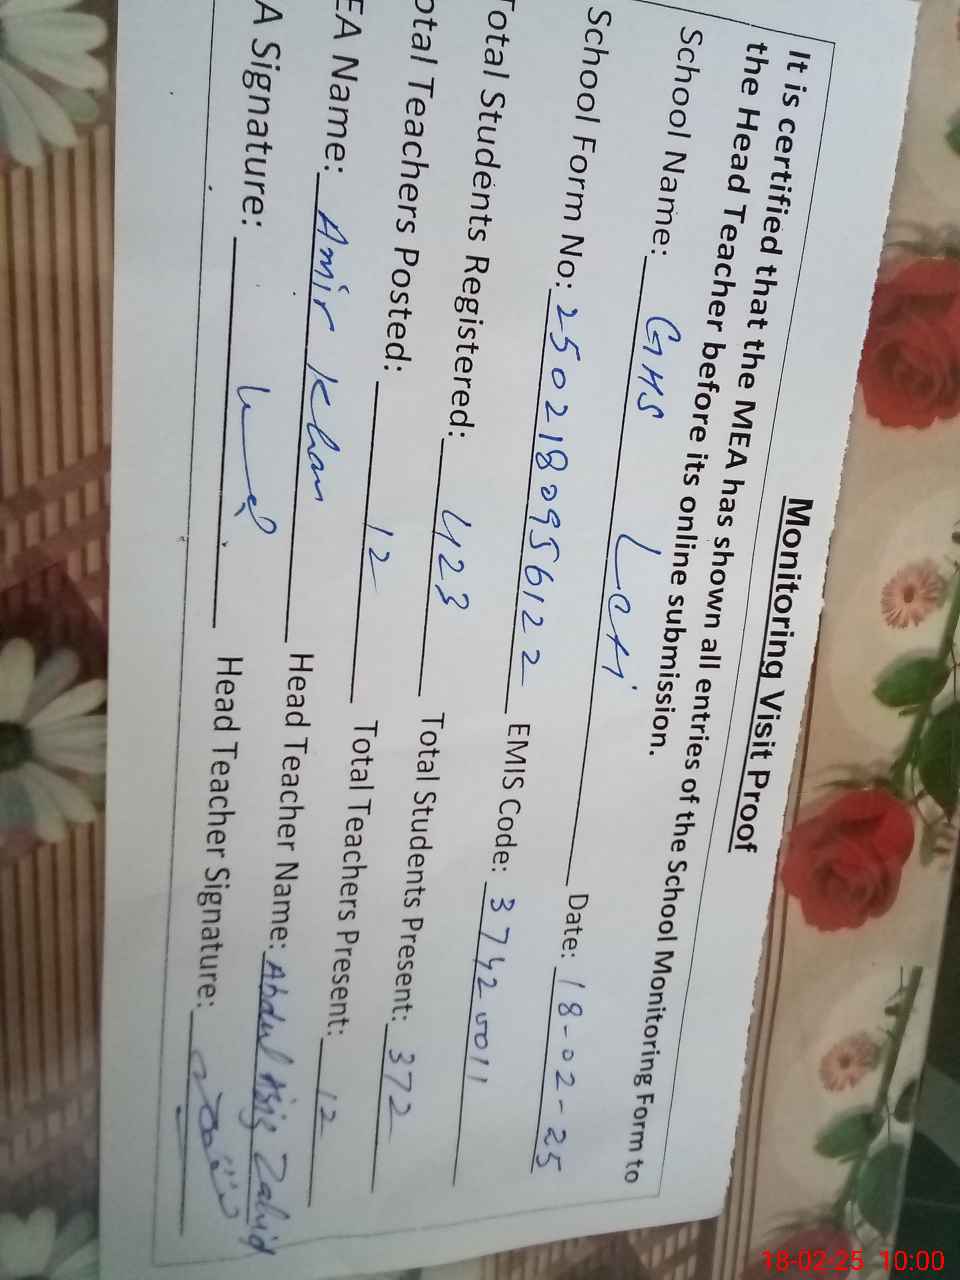 Monitoring Visit Proof
It is certified that the MEA has shown all entries of the School Monitoring Form to
the Head Teacher before its online submission.
School Name: GHS Leti Date: 18-02-25
School Form No: 250218095612 2 EMIS Code: 37420011
Total Students Registered: 423 Total Students Present: 372
otal Teachers Posted: 12 Total Teachers Present: 12
EA Name: Amir Khan Head Teacher Name: Abdul Aziz Zahid
A Signature: Head Teacher Signature:
18-02-25 10:00